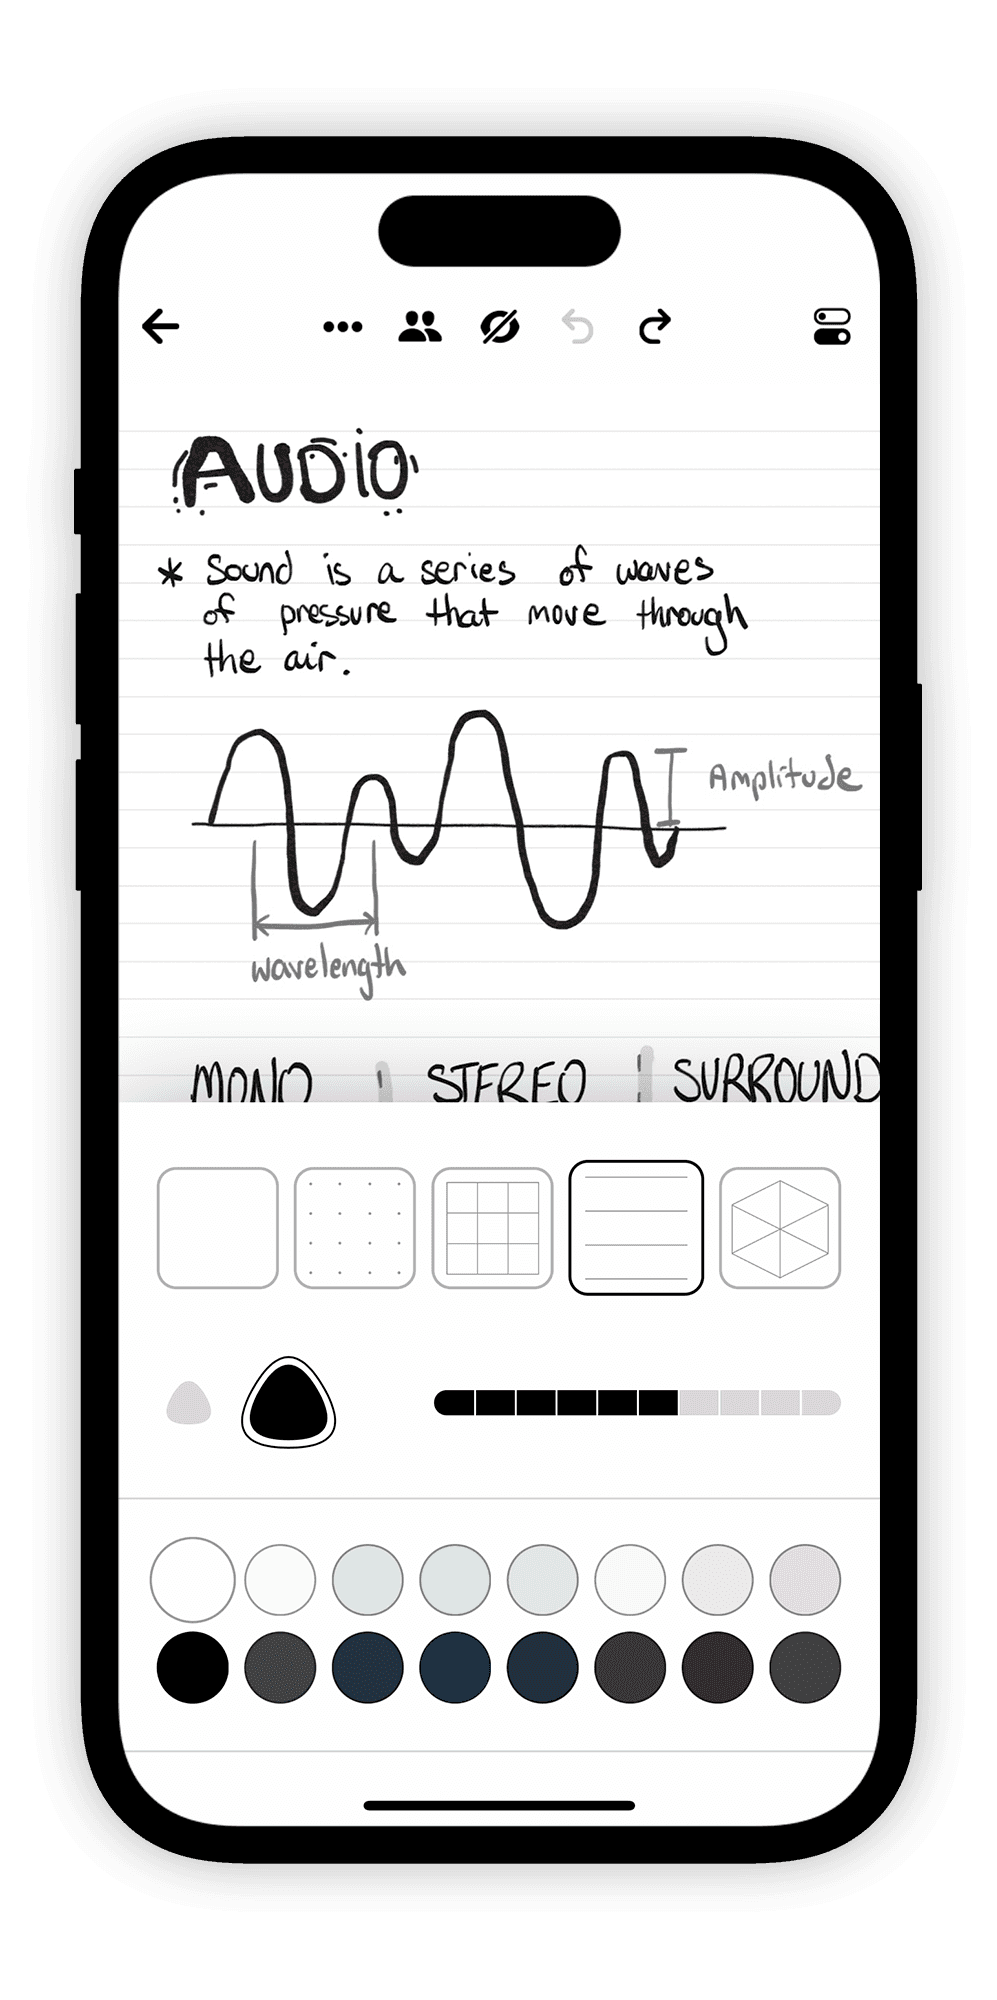 AUDIO
* Sound is a series of waves
of pressure that move through
the air.
Amplitude
wavelength
MONO STEREO SURROUND